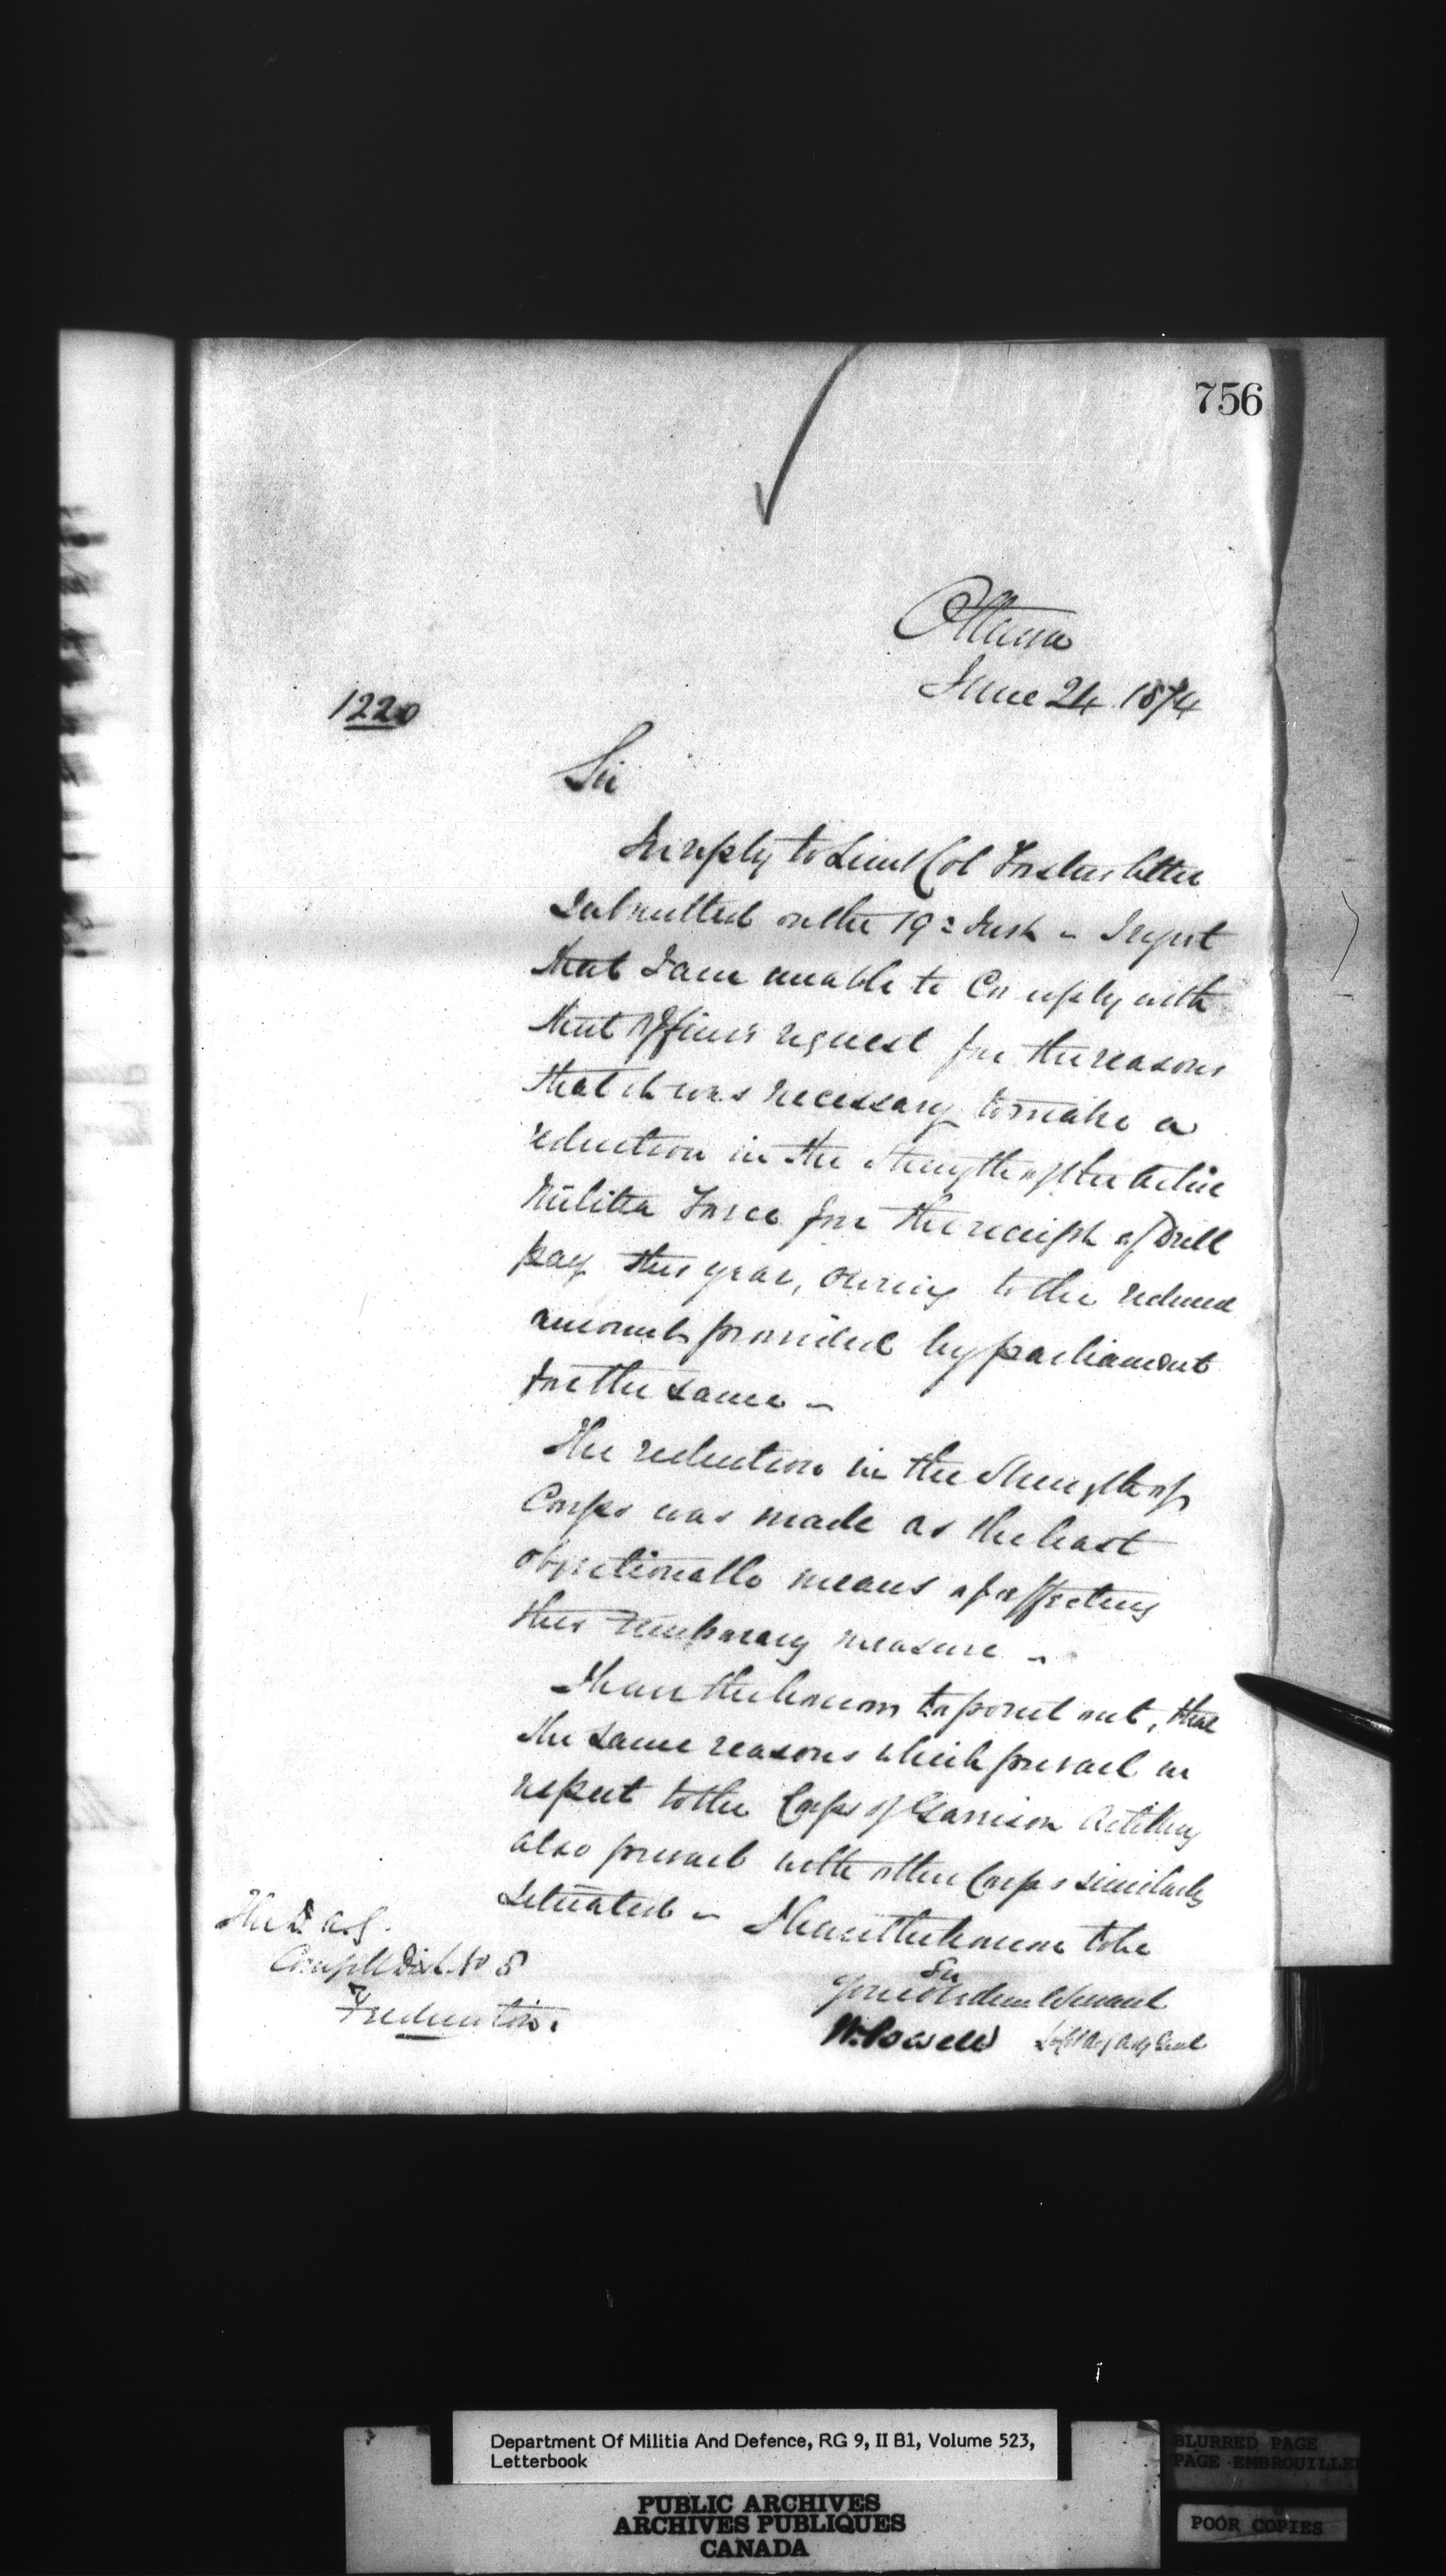 756
Ottawa
June 24 1874
1220
Sir
In reply to Lieut Col Fosters letter
submitted on the 19th Inst - I regret
that I am unable to Comply with
that Officers request for the reasons
that it was necessary to make a
reduction in the strength of the Active
Militia Force for the receipt of Drill
pay this year, owing to the reduced
amount provided by parliament
for the same -
The reduction in the Strength of
Corps was made as the least
objectionable means of effecting
this temporary measure -
I have the honour to point out, that
the same reasons which prevail in
respect to the Corps of Garrison Artillery
also prevail with other Corps similarly
situated - I have the honour to be
Sir
Your Obedient Servant
W. Powell
The D. A. G.
Comdg Mil Dist. No 8
Fredericton.
Department Of Militia And Defence, RG 9, II B1, Volume 523,
Letterbook
PUBLIC ARCHIVES
ARCHIVES PUBLIQUES
CANADA
BLURRED PAGE
PAGE EMBROUILLEE
POOR COPIES